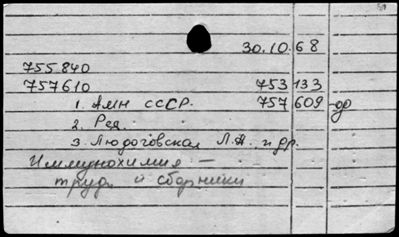 30.10.68
755840
757610 753 133
1. АМН СССР. 757 609 до
2. Ред.
3. Людоговская Л.А. и др.
Иммунохимия —
труды и сборники